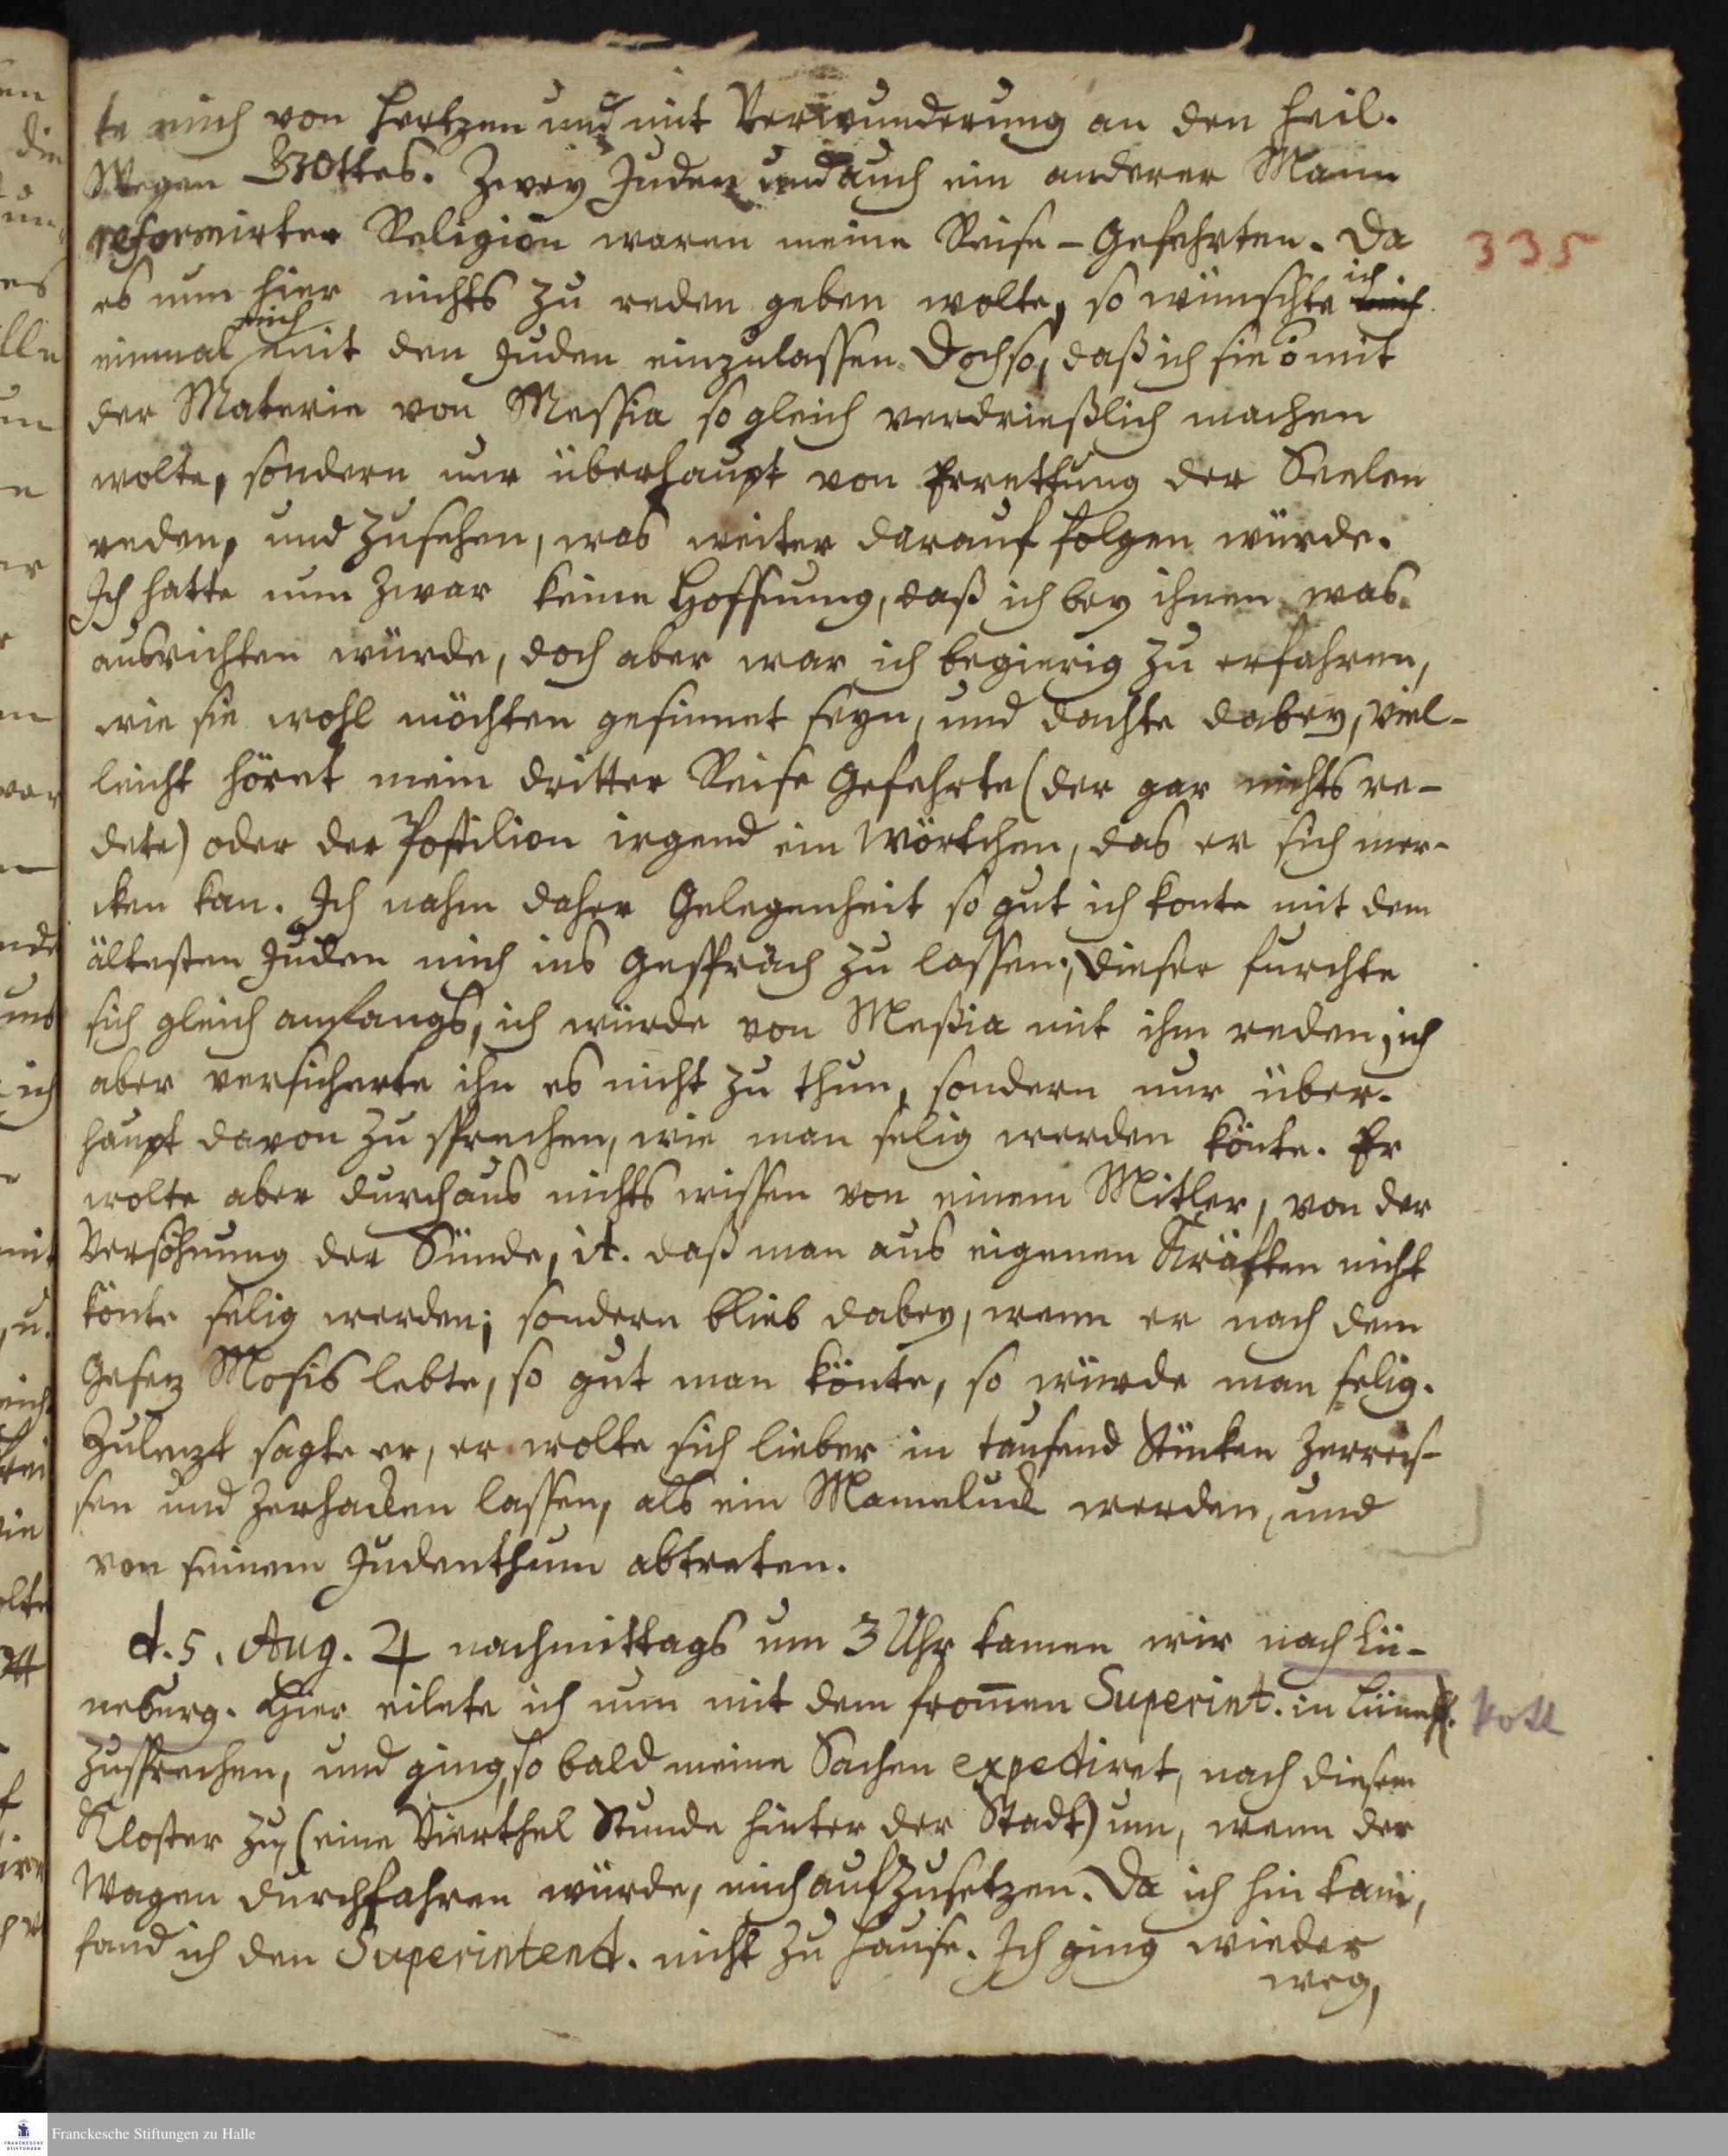 te mich von Hertzen und mit Verwunderung an den heil.
Wegen GOttes. Zwey Juden und auch ein anderer Mann
reformirter Religion waren meine Reise-Gefehrten. Da
335
es nun hier nichts zu reden geben wolte, so wünschte ich
einmal mich mit den Juden einzulassen. Doch so, daß ich sie ō mit
der Materie von Messia so gleich verdrießlich machen
wolte, sondern nur überhaupt von Errettung der Seelen
reden, und zusehen, was weiter darauf folgen würde.
Ich hatte nun zwar keine Hoffnung, daß ich bey ihnen was
ausrichten würde, doch aber war ich begierig zu erfahren,
wie sie wohl möchten gesinnet seyn, und dachte dabey, viel-
leicht höret mein dritter Reise Gefehrte (der gar nichts re-
dete) oder der Postilion irgend ein Wörtchen, das er sich mer-
cken kan. Ich nahm daher Gelegenheit so gut ich konte mit dem
ältesten Juden mich ins Gespräch zu lassen; dieser furchte
sich gleich anfangs, ich würde von Meßia mit ihm reden; ich
aber versicherte ihn es nicht zu thun, sondern nur über-
haupt davon zu sprechen, wie man selig werden könte. Er
wolte aber durchaus nichts wissen von einem Mitler, von der
Versöhnung der Sünde, it. daß man aus eigenen Kräften nicht
könte selig werden; sondern blieb dabey, wenn er nach dem
Gesez Mosis lebte, so gut man könte, so würde man selig.
Zulezt sagte er, er wolte sich lieber in tausend Stücken zerreis-
sen und zerhacken lassen, als ein Mameluck werden, und
von seinem Judenthum abtreten.
d. 5. Aug. ♃ nachmittags um 3 Uhr kamen wir nach Lü-
neburg. Hier eilete ich nun mit dem from̄en Superint. in Lüne
zusprechen, und ging, so bald meine Sachen expediret, nach diesem
Kloster zu, (eine Vierthel Stunde hinter der Stadt) um, wenn der
Wagen durchfahren würde, mich aufzusetzen. Da ich hin kam,
fand ich den Superintend. nicht zu Hause. Ich ging wieder
weg,
Franckesche Stiftungen zu Halle
FRANCKESCHE
STIFTUNGEN